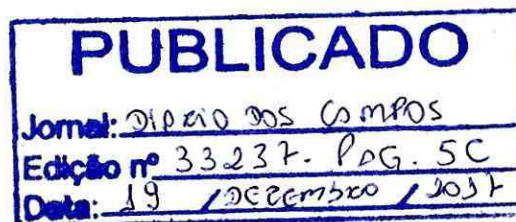 PUBLICADO
Jornal: DIÁRIO DOS CAMPOS
Edição nº 33.237. PÁG. 5C
Data: 19 / DEZEMBRO / 2017